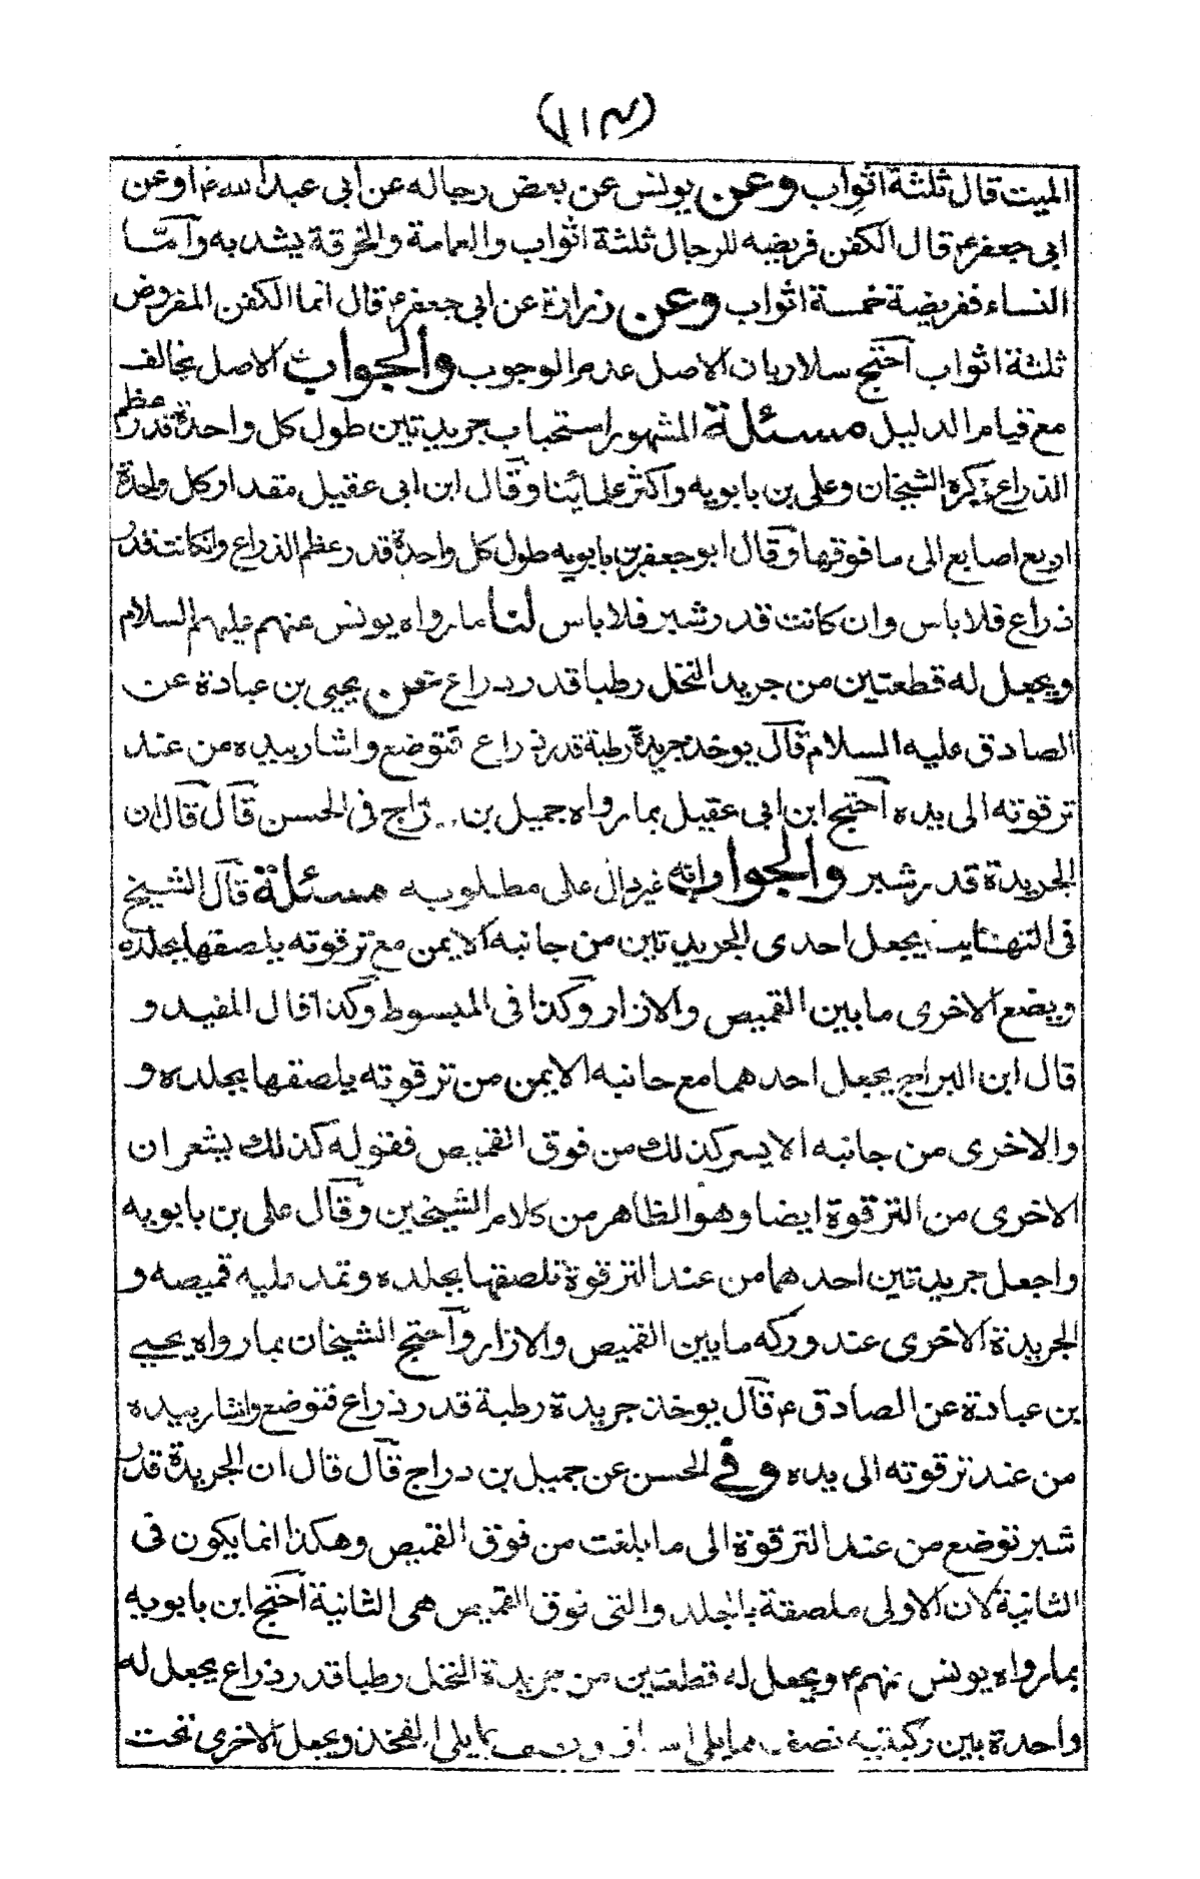 (١١٣)
الميت قال ثلثة اثواب وعن يونس عن بعض رجاله عن ابى عبد الله ع او عن
ابى جعفر ع قال الكفن فريضه للرجال ثلثة اثواب والعمامة والخرقة يشد به وآمّا
النساء ففريضة خمسة اثواب وعن زرارة عن ابى جعفر ع قال انما الكفن المفروض
ثلثة اثواب آحتج سلار بان الاصل عدم الوجوب والجواب الاصل يخالف
مع قيام الدليل مسئلة المشهور استحباب جريدتين طول كل واحدة قدر عظم
الذراع ذكره الشيخان وعلى بن بابويه واكثر علمائنا وقال ابن ابى عقيل مقدار كل واحدة
اربع اصابع الى ما فوقها وقال ابو جعفر بن بابويه طول كل واحدة قدر عظم الذراع وانكانت قدر
ذراع فلا باس وان كانت قدر شبر فلا باس لنا ما رواه يونس عنهم عليهم السلام
ويجعل له قطعتين من جريد النخل رطبا قدر ذراع وعن يحيى بن عبادة عن
الصادق عليه السلام قال يوخذ جريدة رطبة قدر ذراع فتوضع واشار بيده من عند
ترقوته الى يده آحتج ابن ابى عقيل بما رواه جميل بن دراج فى الحسن قال قال ان
الجريدة قدر شبر والجواب انه غير دال على مطلوبه مسئلة قال الشيخ
فى النهاية يجعل احدى الجريدتين من جانبه الايمن مع ترقوته يلصقها بجلده
ويضع الاخرى ما بين القميص والازار وكذا فى المبسوط وكذا قال المفيد و
قال ابن البراج يجعل احدهما مع جانبه الايمن من ترقوته يلصقها بجلده و
والاخرى من جانبه الايسر كذلك من فوق القميص فقوله كذلك يشعر ان
الاخرى من الترقوة ايضا وهو الظاهر من كلام الشيخين وقال على بن بابويه
واجعل جريدتين احدهما من عند الترقوة تلصقها بجلده وتمد عليه قميصه و
الجريدة الاخرى عند وركه ما بين القميص والازار وآحتج الشيخان بما رواه يحيى
بن عبادة عن الصادق ع قال يوخذ جريدة رطبة قدر ذراع فتوضع واشار بيده
من عند ترقوته الى يده وفي الحسن عن جميل بن دراج قال قال ان الجريدة قدر
شبر توضع من عند الترقوة الى ما بلغت من فوق القميص وهكذا انما يكون فى
الثانية لان الاولى ملصقة بالجلد والتى فوق القميص هى الثانية آحتج ابن بابويه
بما رواه يونس عنهم ع ويجعل له قطعتين من جريدة النخل رطبا قدر ذراع يجعل له
واحدة بين ركبتيه نصف مما يلى الساق ونصف مما يلى الفخذ ويجعل الاخرى تحت